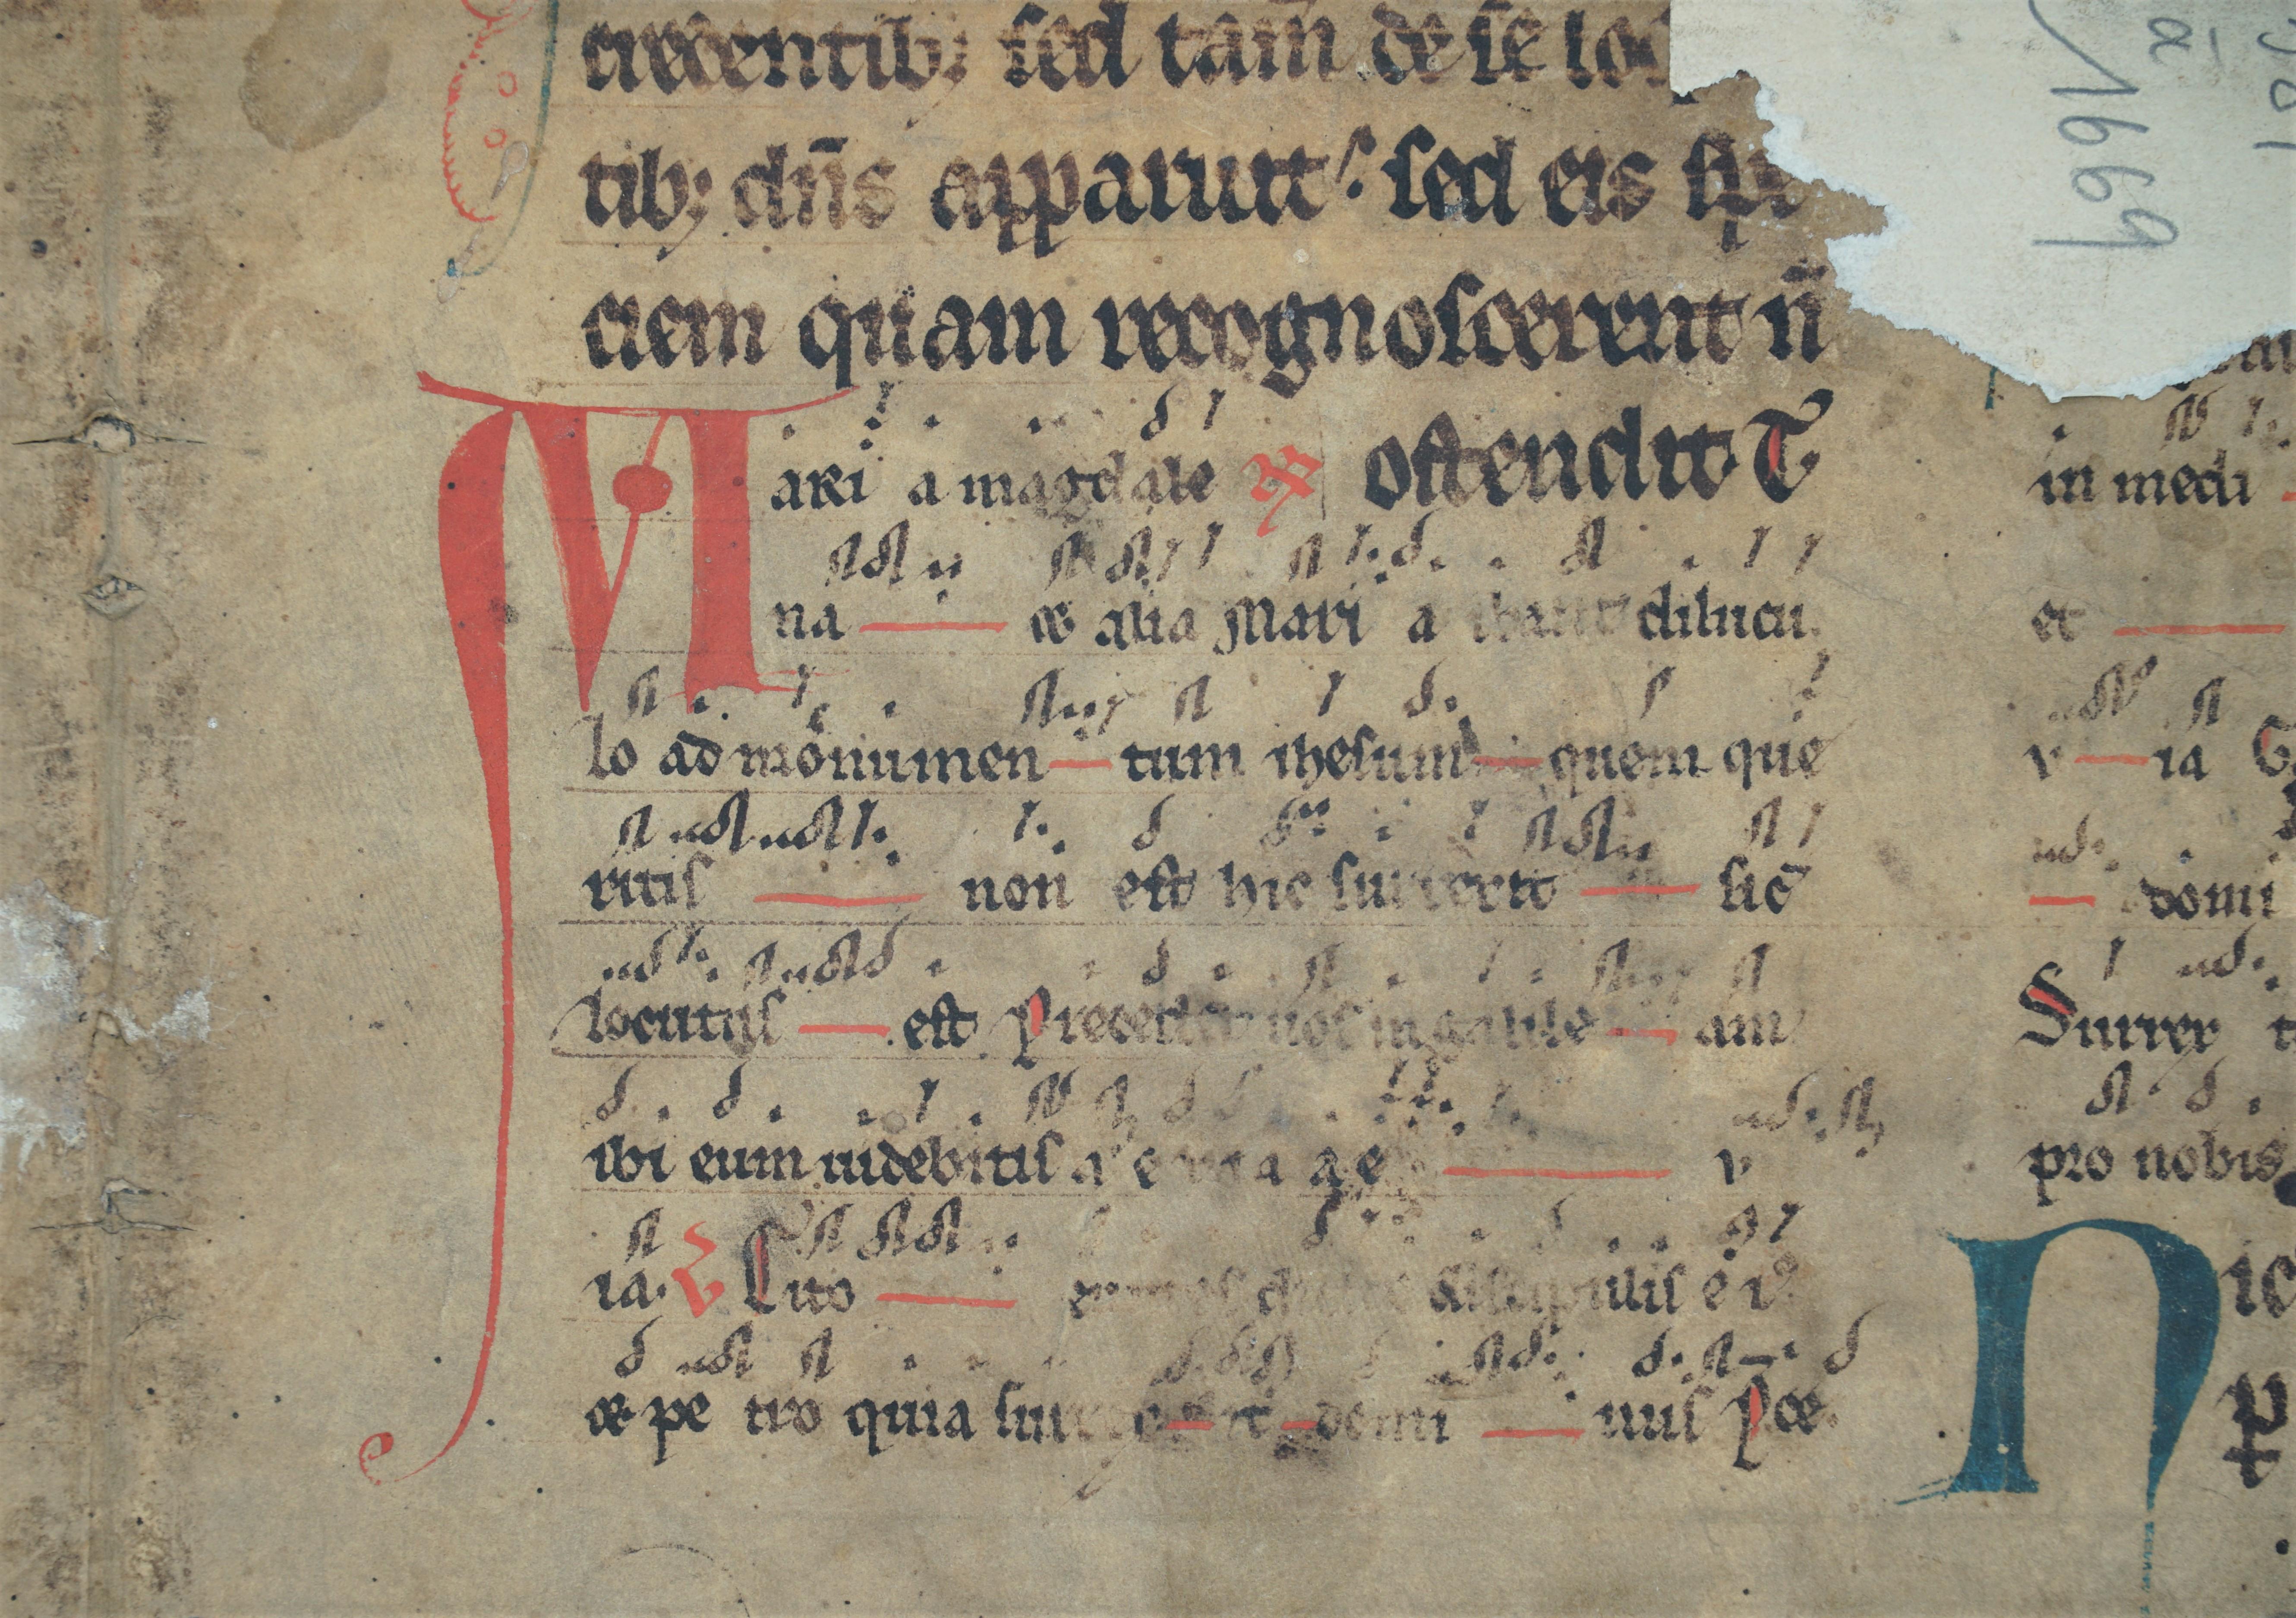 credentib; sed tam̄ de se loq
tib; dn̄s apparuit: sed eis spe
ciem quam recognoscerent n̄
ostendit. T
Mari a magdale ℟
na et alia Mari a ibant dilucu
lo ad monumen tum ihesum quem que
ritis non est hic surrexit sic̄
locutus est Precedet uos in galile am
ibi eum uidebitis a e u i a a e v
ia. ℣ Cito euntes dicite discipulis ei⁹
et pe tro quia surrexit domi nus P̄ce.
1669
in medi
et
v ia
domi
Surrex
pro nobis
Nic